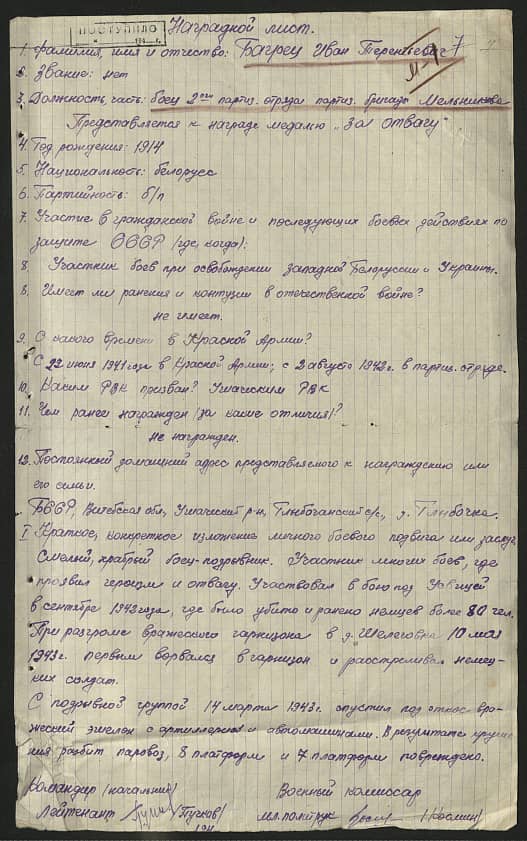 ПОСТУПИЛО
Наградной лист.
1. Фамилия, имя и отчество: Багрец Иван Терентьевич
2. Звание: нет
3. Должность, часть: боец 2ого партиз. отряда партиз. бригады Мельникова
Представляется к награде медалью „За отвагу"
4. Год рождения: 1914
5. Национальность: белорусс
6. Партийность: б/п
7. Участие в гражданской войне и последующих боевых действиях по
защите СССР (где, когда):
8. Участник боев при освобождении западной Белоруссии и Украины.
8. Имеет ли ранения и контузии в отечественной войне?
не имеет.
9. С какого времени в Красной Армии?
С 22 июня 1941 года в Красной Армии; с 2 августа 1942 г. в партиз. отряде.
10. Каким РВК призван? Ушачским РВК
11. Чем ранее награжден (за какие отличия)?
не награжден.
12. Постоянный домашний адрес представляемого к награждению или
его семьи.
БССР, Витебская обл, Ушачский р-н, Глыбочанский с/с, д. Глыбочка.
I Краткое, конкретное изложение личного боевого подвига или заслуг
Смелый, храбрый боец-подрывник. Участник многих боев, где
проявил героизм и отвагу. Участвовал в бою под
в сентябре 1942 года, где было убито и ранено немцев более 80 чел.
При разгроме вражеского гарнизона в д. Шелеговка 10 мая
1943 г. первым ворвался в гарнизон и расстреливал немец-
ких солдат.
С подрывной группой 14 марта 1943 г. опустил под откос вра-
жеский эшелон с артиллерией и автомашинами. В результате круше-
ния разбит паровоз, 8 платформ и 7 платформ повреждено.
Командир (начальник) Военный комиссар
Лейтенант /Пучков/ мл. политрук